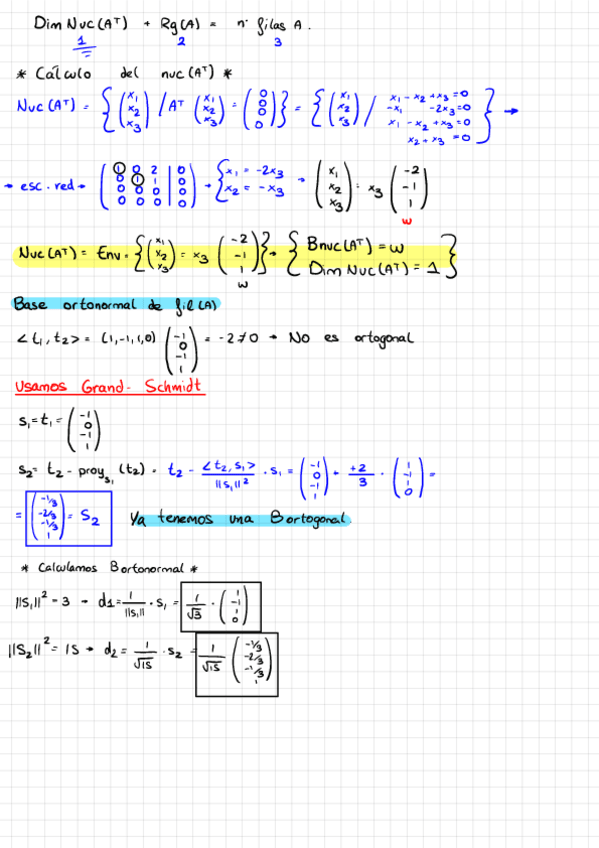 Dim Nuc(Aᵀ) + Rg(A) = nº filas A.
1 2 3
* Cálculo del nuc(Aᵀ) *
Nuc(Aᵀ) = { (x₁ x₂ x₃) / Aᵀ (x₁ x₂ x₃) = (0 0 0 0) } = { (x₁ x₂ x₃) / x₁ - x₂ + x₃ = 0
-x₁ -2x₃ = 0
x₁ - x₂ + x₃ = 0
x₂ + x₃ = 0 } →
→ esc. red → (1 0 2 | 0
0 1 1 | 0
0 0 0 | 0
0 0 0 | 0) → { x₁ = -2x₃
x₂ = -x₃ → (x₁ x₂ x₃) = x₃ (-2 -1 1)
w
Nuc(Aᵀ) = Env = { (x₁ x₂ x₃) = x₃ (-2 -1 1) } → { Bnuc(Aᵀ) = w
Dim Nuc(Aᵀ) = 1 }
w
Base ortonormal de fil(A)
<t₁, t₂> = (1,-1,1,0) (-1 0 -1 1) = -2 ≠ 0 → No es ortogonal
Usamos Grand-Schmidt
s₁ = t₁ = (-1 0 -1 1)
s₂ = t₂ - proy s₁ (t₂) = t₂ - <t₂, s₁> / ||s₁||² · s₁ = (-1 0 -1 1) + +2/3 · (1 -1 1 0) =
= (-1/3 -2/3 -1/3 1) = S₂ Ya tenemos una Bortogonal
* Calculamos Bortonormal *
||S₁||² = 3 → d1 = 1/||s₁|| · s₁ = 1/√3 · (1 -1 1 0)
||S₂||² = 15 → d₂ = 1/√15 · s₂ = 1/√15 (-1/3 -2/3 -1/3 1)